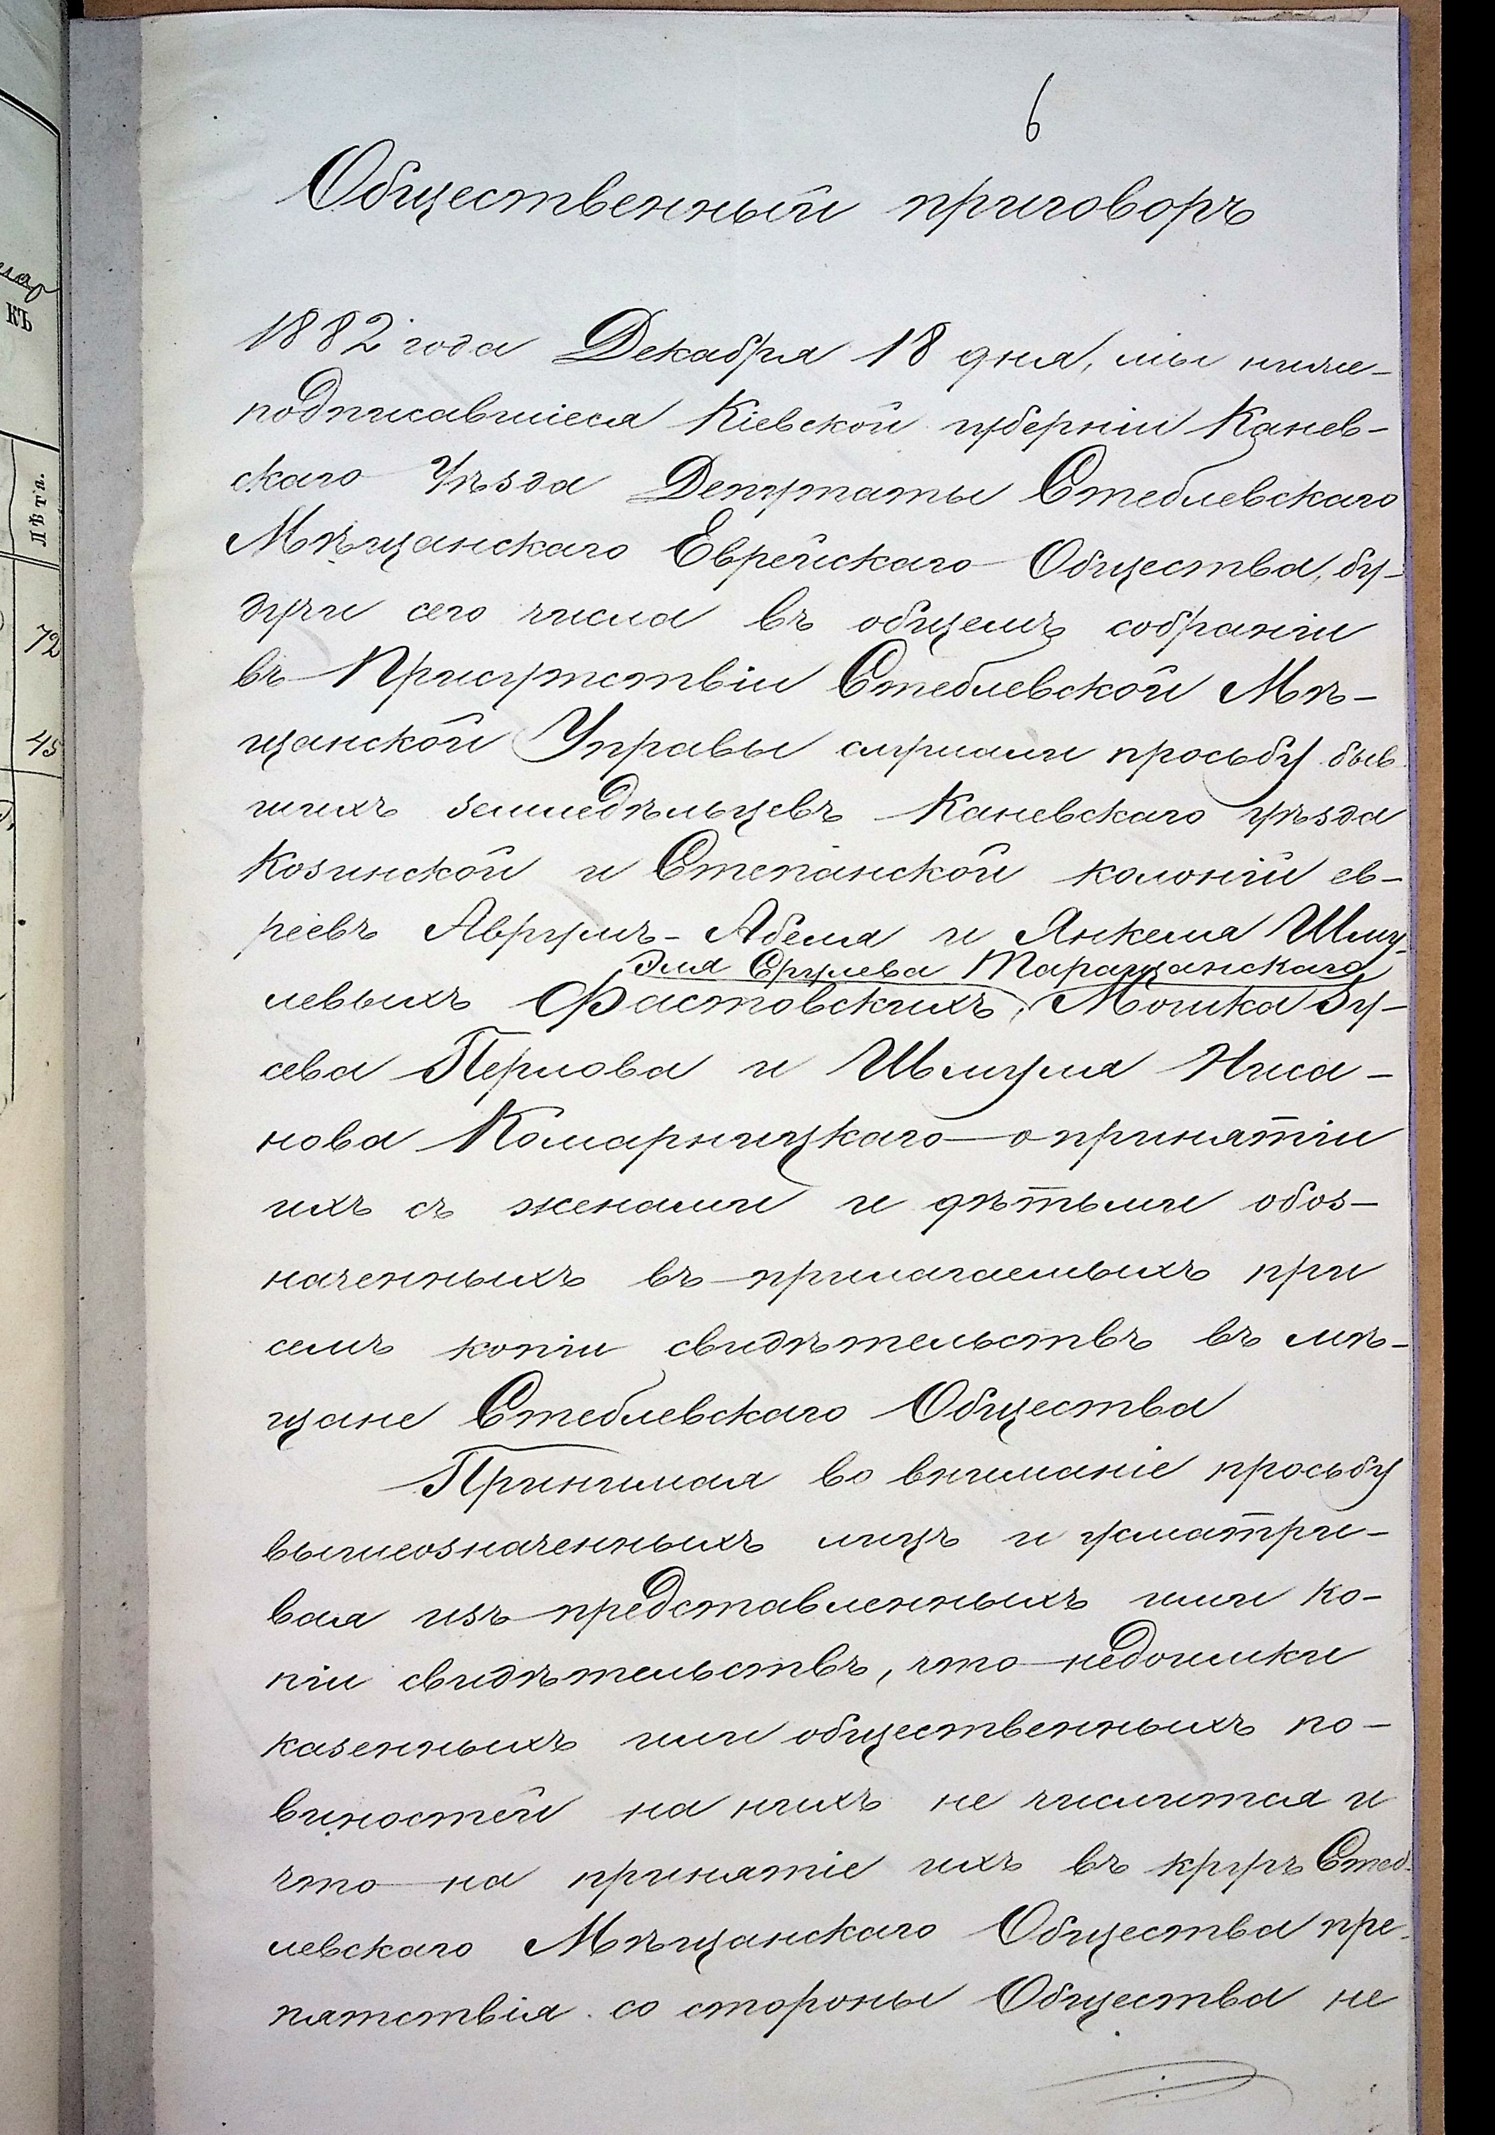 6
Общественный приговоръ
1882 года Декабря 18 дня, мы ниже-
подписавшіеся Кіевской губерніи Канев-
скаго Уѣзда Депутаты Стеблевскаго
Мѣщанскаго Еврейскаго Общества, бу-
дучи сего числа въ общемъ собраніи
въ Присутствіи Стеблевской Мѣ-
щанской Управы слушали просьбу быв-
шихъ земледѣльцевъ Каневскаго уѣзда
Козинской и Степанской колоній ев-
реевъ Аврумъ-Абеля и Янкеля Шму-
Эля Срулева Таращанскаго
левыхъ Фастовскихъ, Мошка Зу-
сева Перлова и Шмуля Ниса-
нова Комарницкаго о принятіи
ихъ съ женами и дѣтьми обоз-
наченныхъ въ прилагаемыхъ при
семъ копіи свидѣтельствъ въ мѣ-
щане Стеблевскаго Общества
Принимая во вниманіе просьбу
вышеозначенныхъ лицъ и усматри-
вая изъ представленныхъ ими ко-
піи свидѣтельствъ, что недоимки
казенныхъ или общественныхъ по-
виностей на нихъ не числится и
что на принятіе ихъ въ кругъ Стеб-
левскаго Мѣщанскаго Общества пре-
пятствія со стороны Общества не
КЪ
Лѣта.
72
45